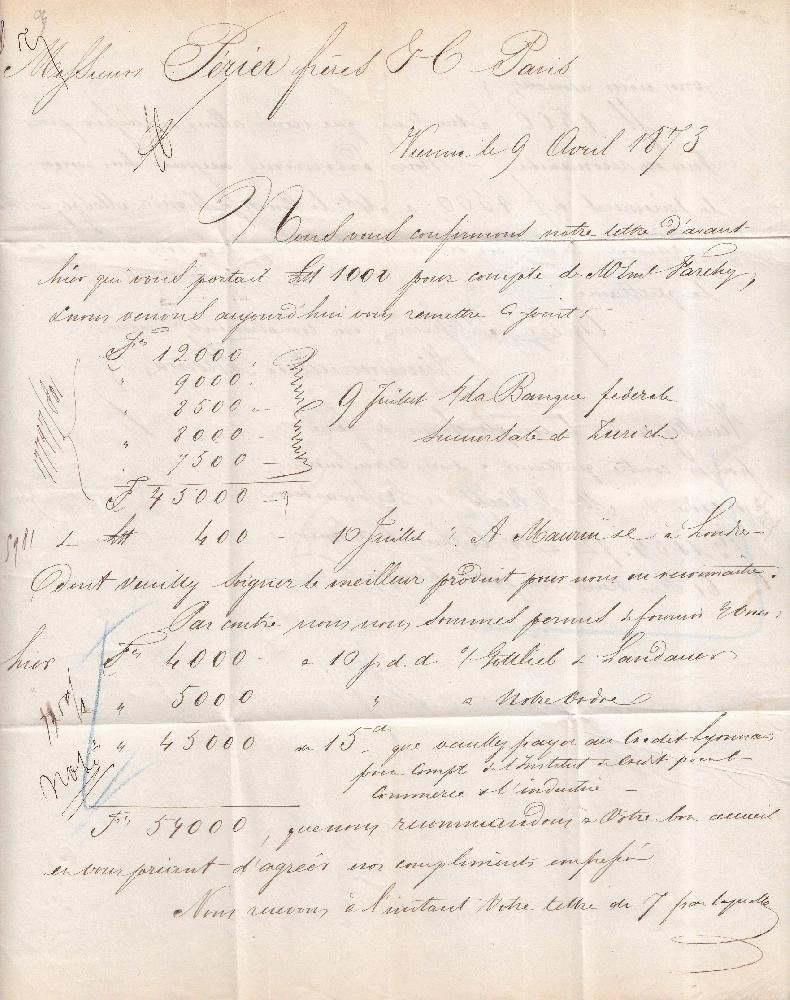 Messieurs Périer frères & C Paris
Vienne le 9 Avril 1873
Nous vous confirmons notre lettre d'avant
hier qui vous portait Lst 1002 pour compte de
& nous venons aujourd'hui vous remettre Ci joint:
Frs 12000.
" 9000.
" 8500 -
" 8000 -
" 7500 -
F 45000 -
9 Juillet s/ la Banque federale
succursale de Zurich
5981 & Lst 400 - 10 Juillet " A à Londres
dont veuillez soigner le meilleur produit pour nous en reconnaitre.
Par contre nous nous sommes permis de fournir s Vous:
hier Frs 4000 - a 10 j. d. d. o/ Gottlieb & Landauer
" 5000 " a Notre Ordre
" 45000 au 15 ct que veuillez payer au Credit Lyonnais
pour Compte de l'Institut de Credit pour le
Commerce & l'industrie -
Frs 54000, que nous recommandons a Votre bon accueil
en vous priant d'agréer nos compliments empressés
Nous recevons à l'instant Votre lettre du 7 par laquelle